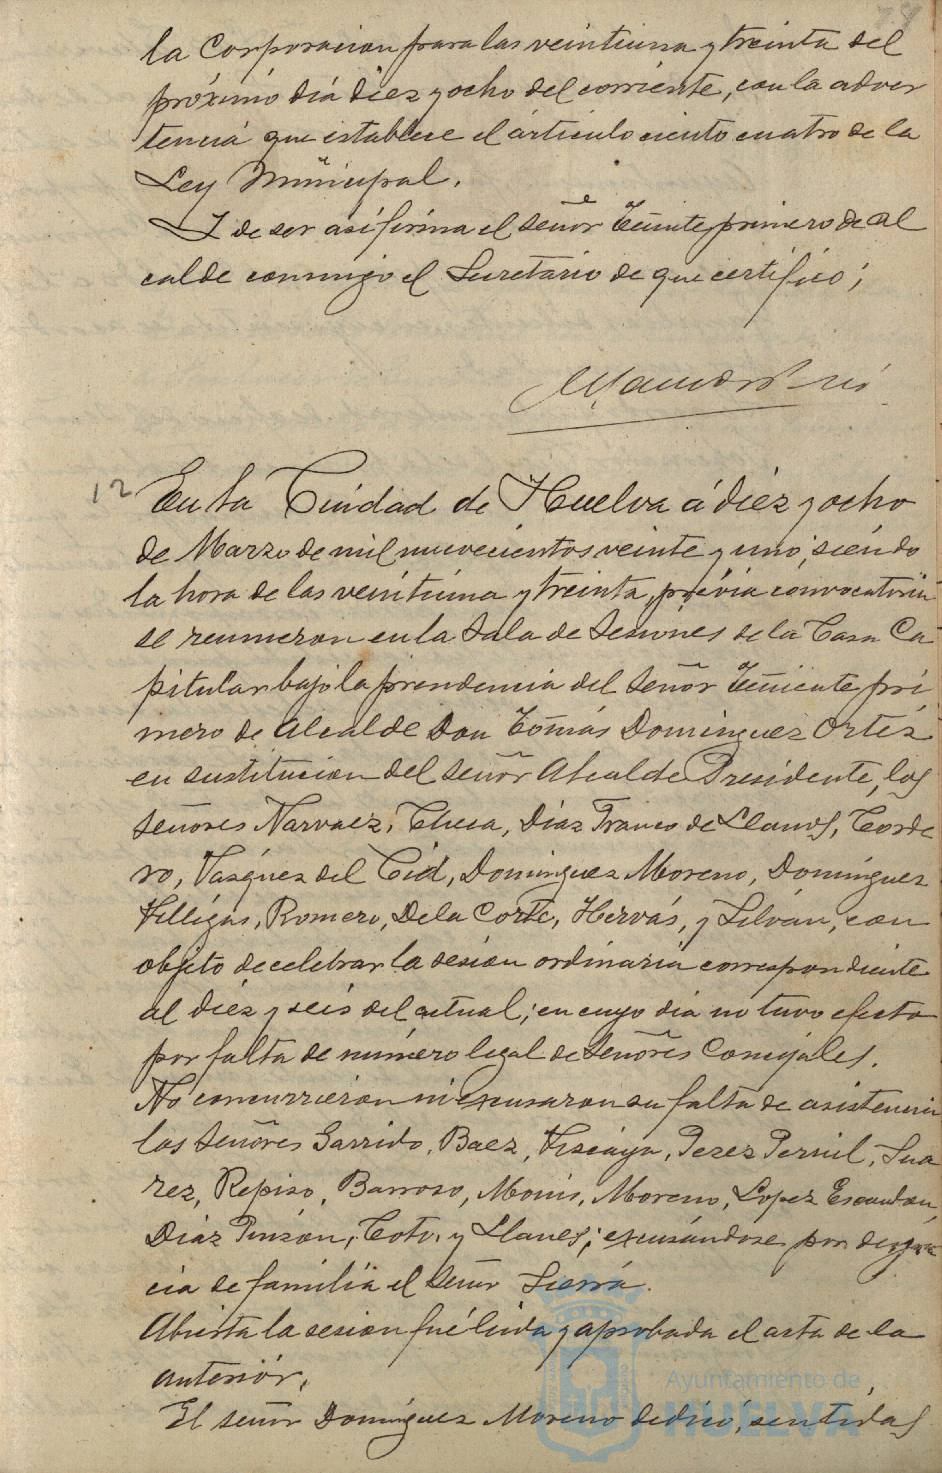 la Corporacion para las veintiuna y treinta del
próximo día diez y ocho del corriente, con la adver
tencia que establece el articulo ciento cuatro de la
Ley Municipal.
Y de ser así firma el señor Teniente primero de Al
calde conmigo el Secretario de que certifico;
12 En la Ciudad de Huelva á diez y ocho
de Marzo de mil nuevecientos veinte y uno, siendo
la hora de las veintiuna y treinta, prévia convocatoria
se reunieron en la Sala de Sesiones de la Casa Ca
pitular bajo la presidencia del Señor Teniente pri
mero de Alcalde Don Tomás Dominguez Ortíz
en sustitucion del señor Alcalde Presidente, los
señores Narvaez, Checa, Díaz Franco de Llanos, Corde
ro, Vasquez del Cid, Dominguez Moreno, Domínguez
Villígas, Romero, De la Corte, Hervás, y Silván, con
objeto de celebrar la sesion ordinaria correspondiente
al diez y seis del actual; en cuyo dia no tuvo efecto
por falta de número legal de Señores Concejales.
No concurrieron ni excusaron su falta de asistencia
los Señores Garrido, Baez, Viscaya, Perez Pernil, Sua
rez, Repiso, Barroso, Monis, Moreno, Lopez Escudon,
Diaz Pinzon, Coto, y Llanes; excusándose por desgra
cia de familia el Señor Sierra.
Abierta la sesion fué leida y aprobada el acta de la
anteriór.
El señor Domínguez Moreno dedicó, sentidas
Ayuntamiento de
HUELVA